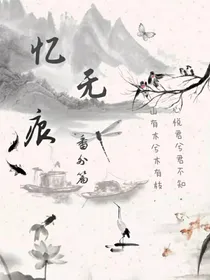 忆无痕
番外篇
山有木兮木有枝，
心悦君兮君不知.